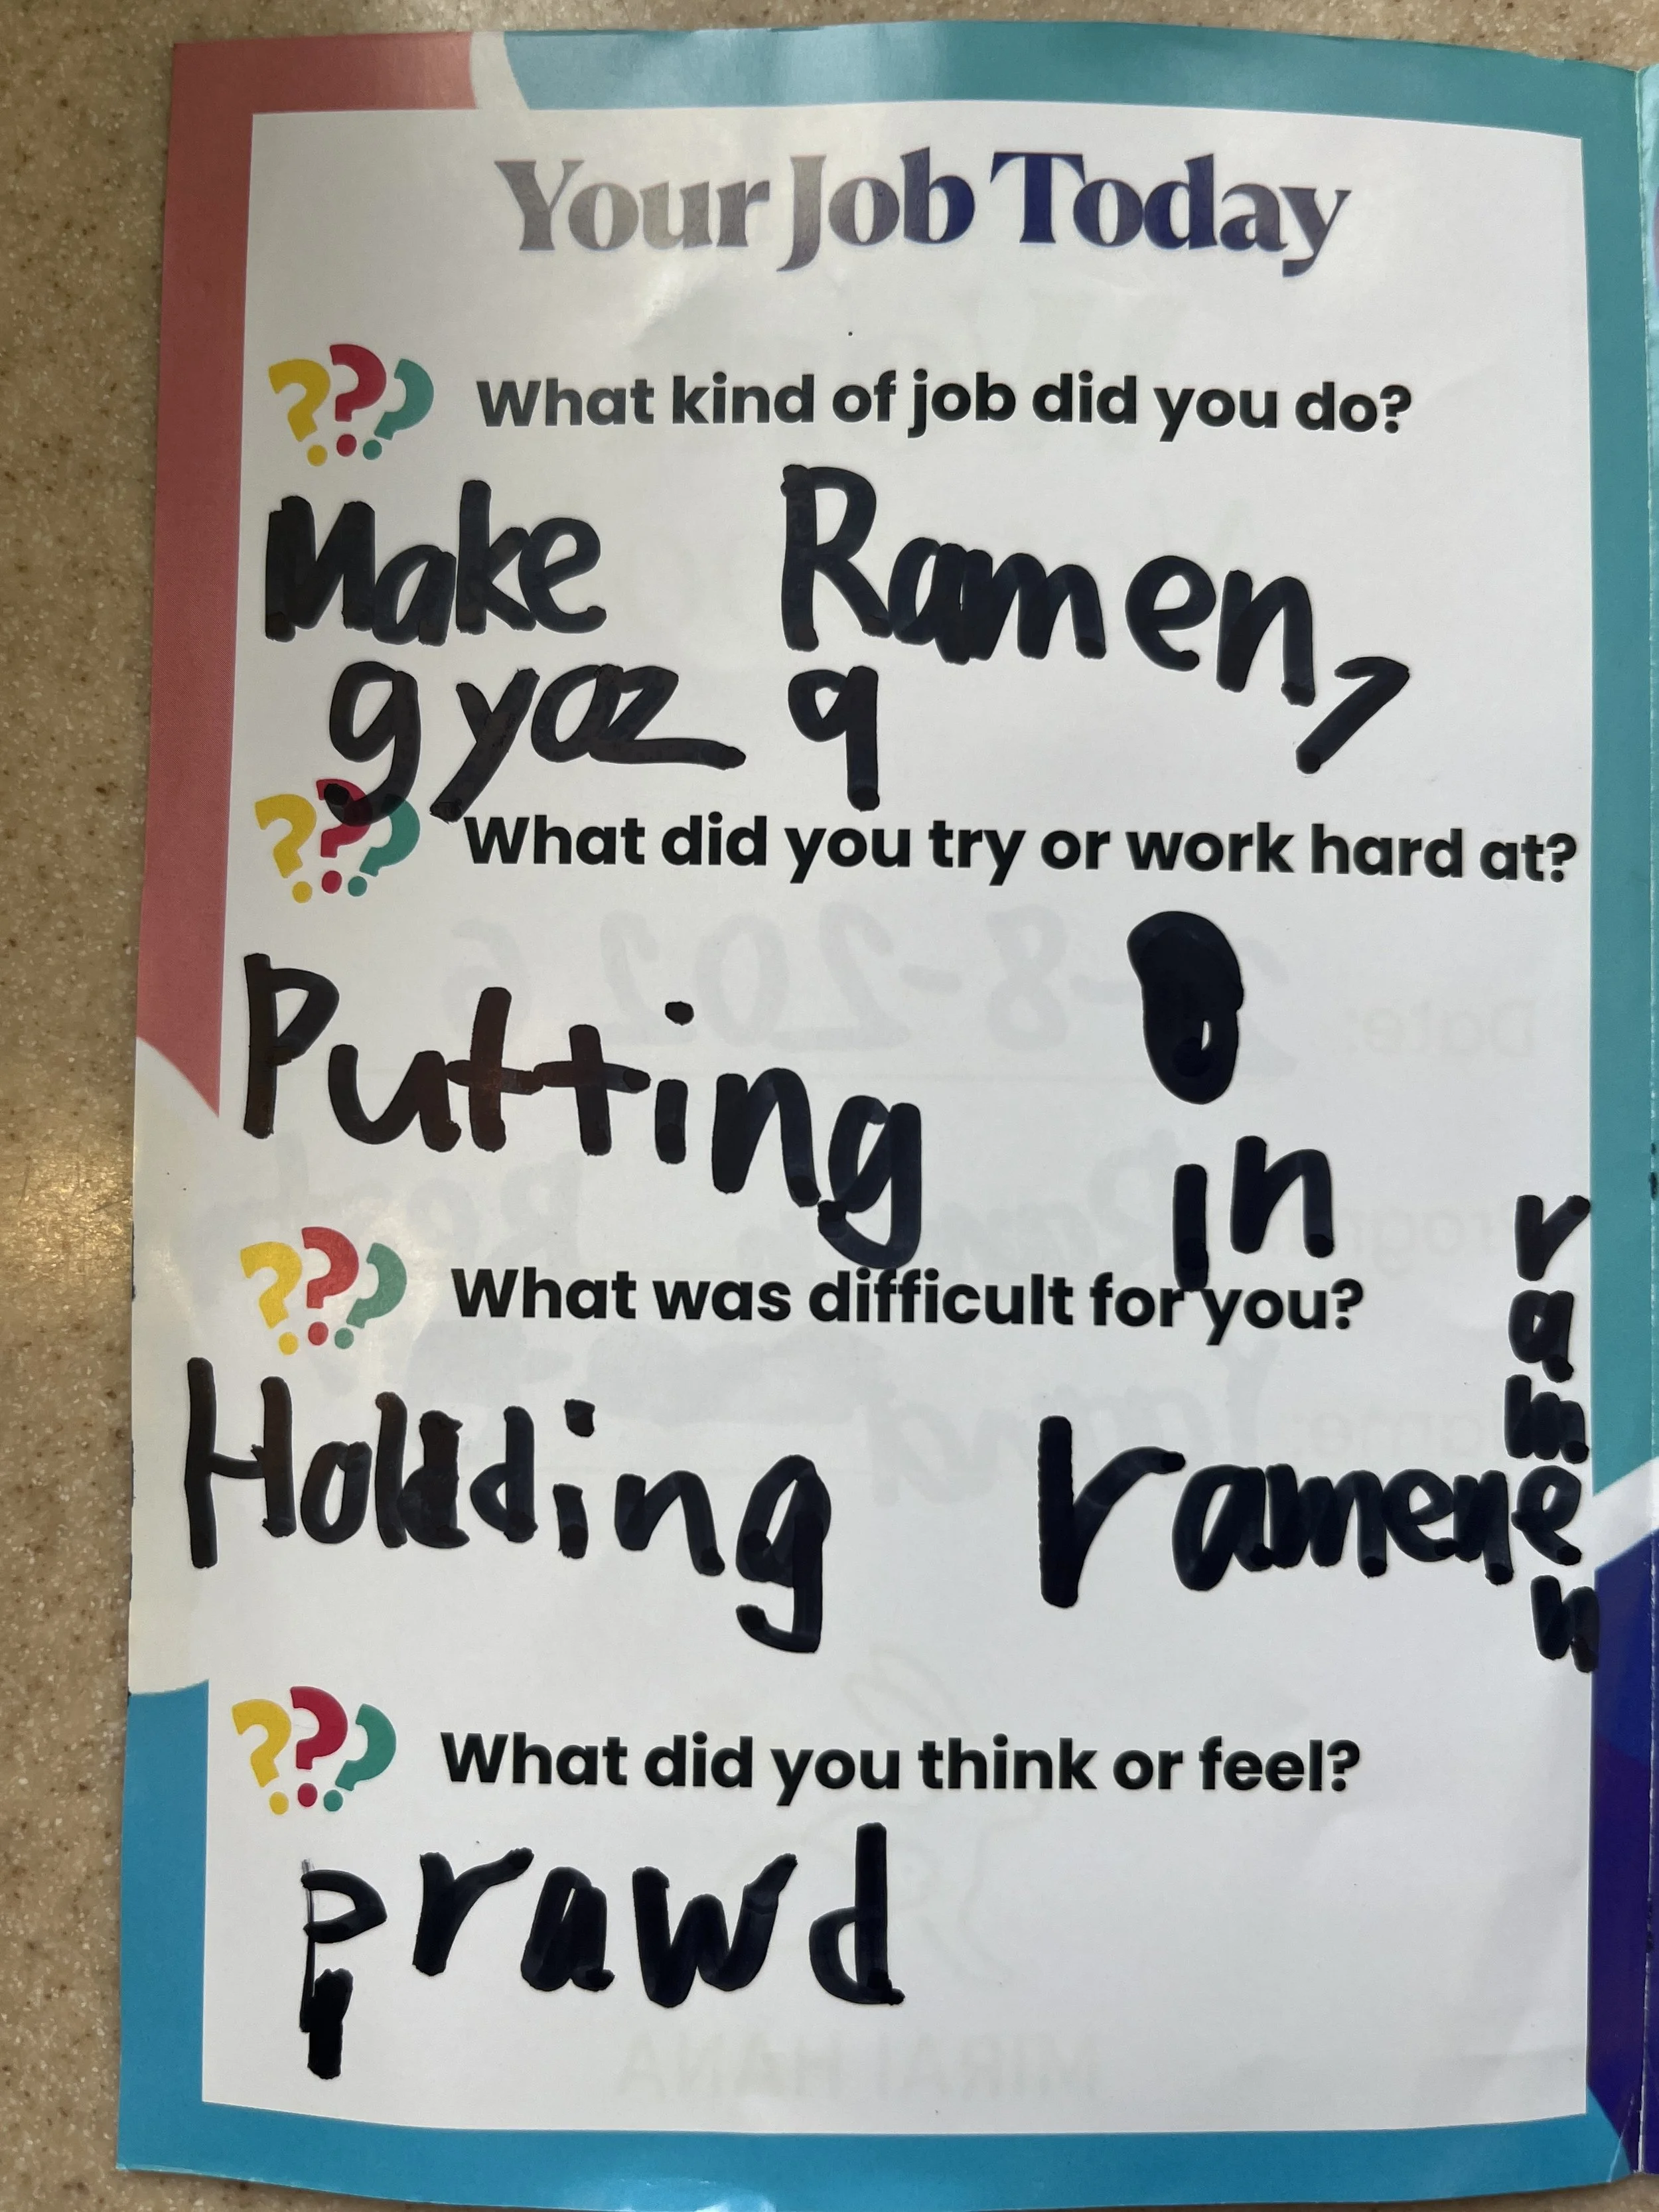 Your Job Today
What kind of job did you do?
Make Ramen,
gyoz a
What did you try or work hard at?
Putting
in
ramen
What was difficult for you?
Holdding ramen
What did you think or feel?
prawd